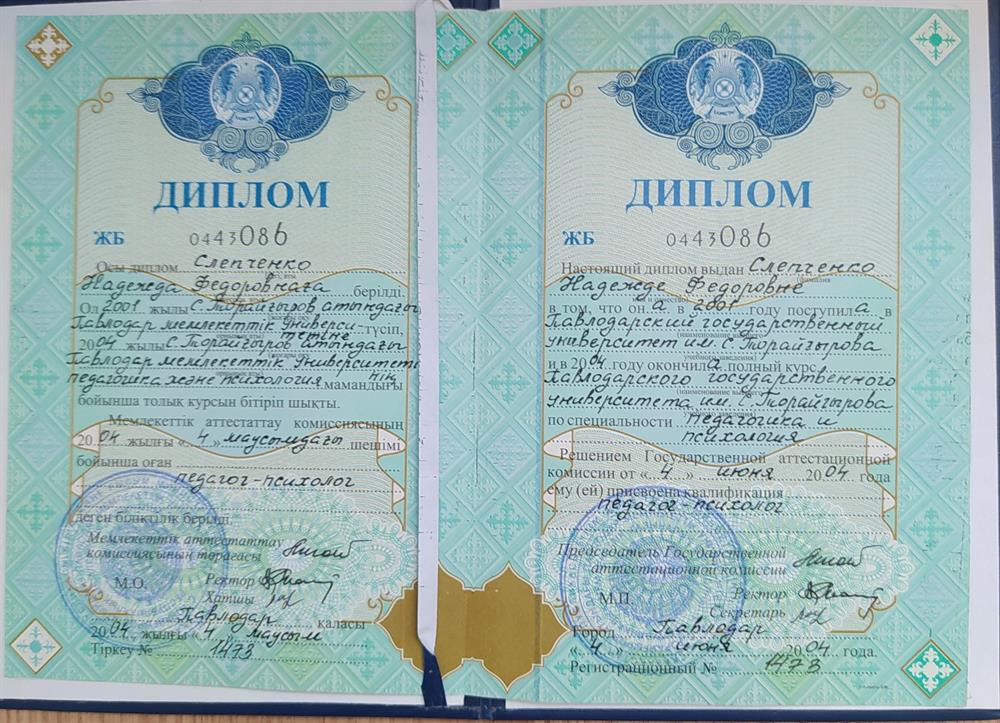 ДИПЛОМ
ЖБ 0443086
Осы диплом Слепченко
Надежда Федоровнаға берілді.
Ол 2001 жылы С.Торайғыров атындағы
Павлодар мемлекеттік универси- түсіп,
тетіне
2004 жылы С.Торайғыров атындағы
Павлодар мемлекеттік университеті
педагогика және психология мамандығы
бойынша толық курсын бітіріп шықты.
Мемлекеттік аттестаттау комиссиясының
2004 жылғы «4» маусымдағы шешімі
бойынша оған
педагог-психолог
деген біліктілік берілді.
Мемлекеттік аттестаттау
комиссиясының төрағасы
М.О. Ректор
Хатшы
Павлодар қаласы
2004 жылғы «4» маусым
Тіркеу № 1473
ДИПЛОМ
ЖБ 0443086
Настоящий диплом выдан Слепченко
Надежде Федоровне
в том, что он а в 2001 году поступил а в
Павлодарский государственный
университет им. С.Торайгырова
и в 2004 году окончил а полный курс
Павлодарского государственного
университета им. С.Торайгырова
по специальности педагогика и
психология
Решением Государственной аттестационной
комиссии от «4» июня 2004 года
ему (ей) присвоена квалификация
педагог-психолог
Председатель Государственной
аттестационной комиссии
М.П. Ректор
Секретарь
Город Павлодар
«4» июня 2004 года.
Регистрационный № 1473